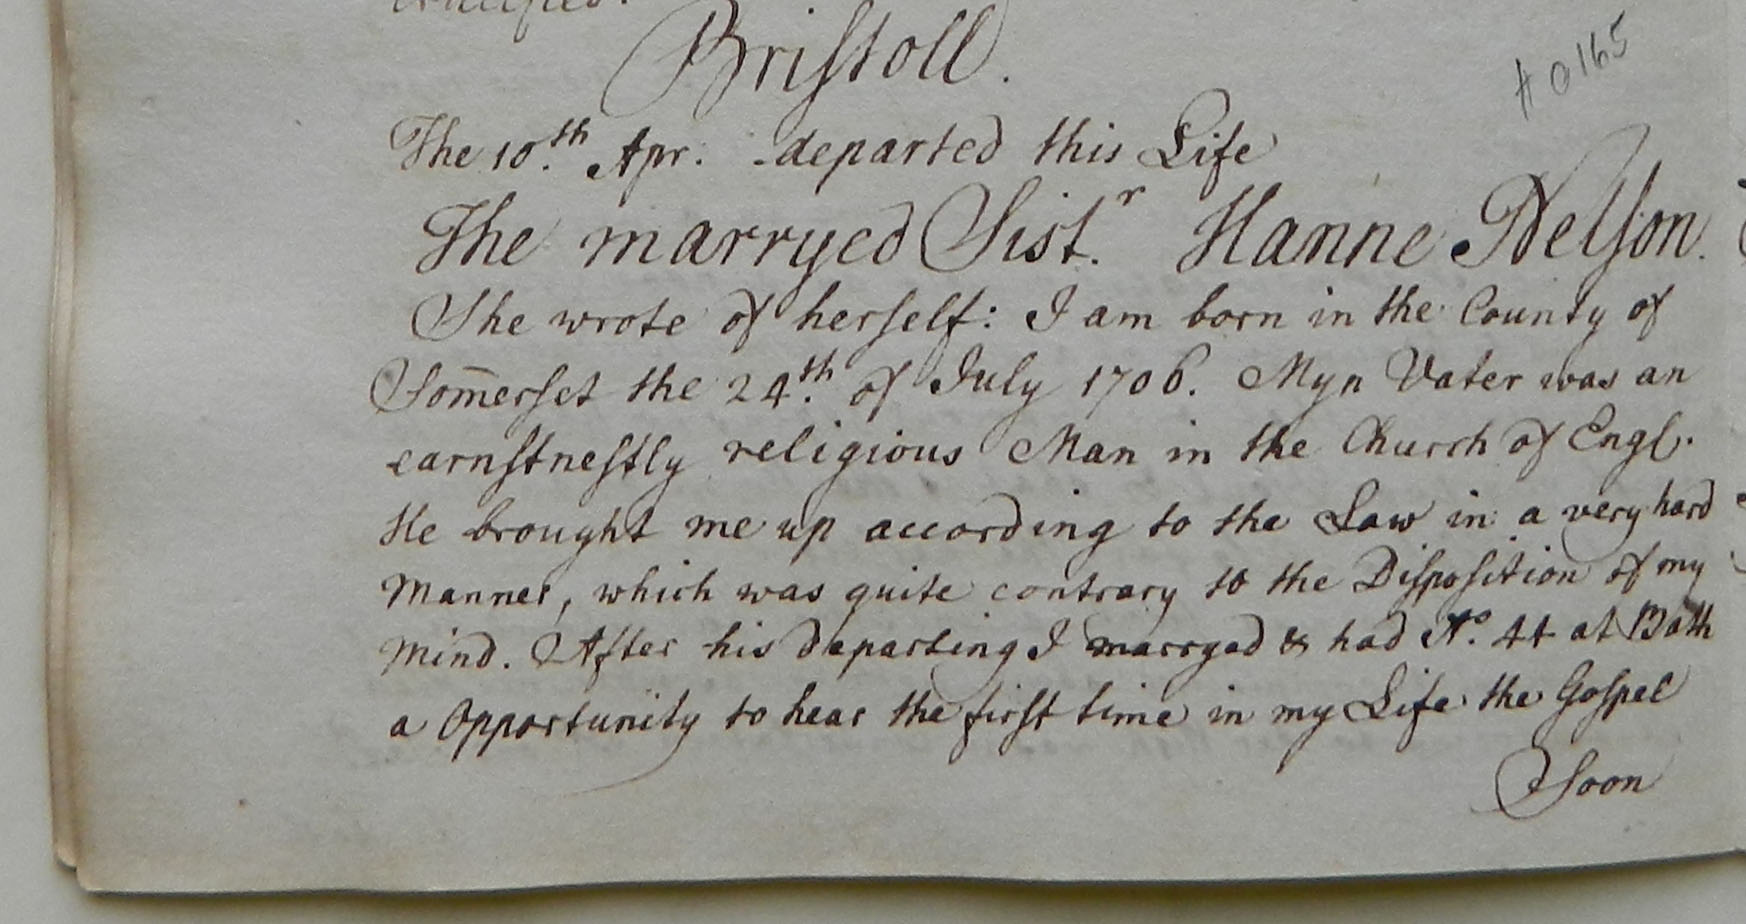 Bristoll.
# 0165
The 10.th Apr. departed this Life
The marryed Sist.r Hanne Nelson.
She wrote of herself: I am born in the County of
Som̅erset the 24.th of July 1706. Myn Vater was an
earnstnestly religious Man in the Church of Engl.
He brought me up according to the Law in a very hard
Manner, which was quite contrary to the Disposition of my
Mind. After his departing I marryed & had A.o 44 at Bath
a Opportunity to hear the first time in my Life the Gospel
Soon